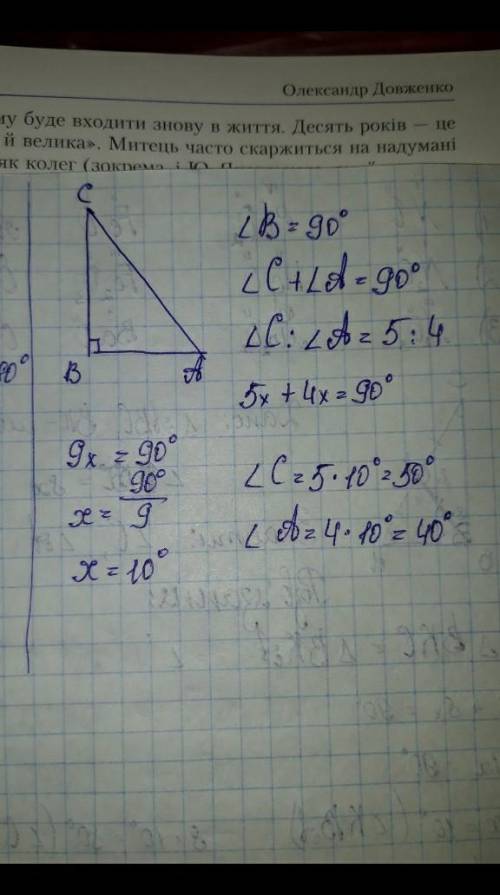 Олександр Довженко
му буде входити знову в життя. Десять років — це
й велика». Митець часто скаржиться на надумані
як колег (зокрема, і Ю.
C
B
A
∠B = 90°
∠C + ∠A = 90°
∠C : ∠A = 5 : 4
5x + 4x = 90°
9x = 90°
x = 90°/9
x = 10°
∠C = 5 · 10° = 50°
∠A = 4 · 10° = 40°